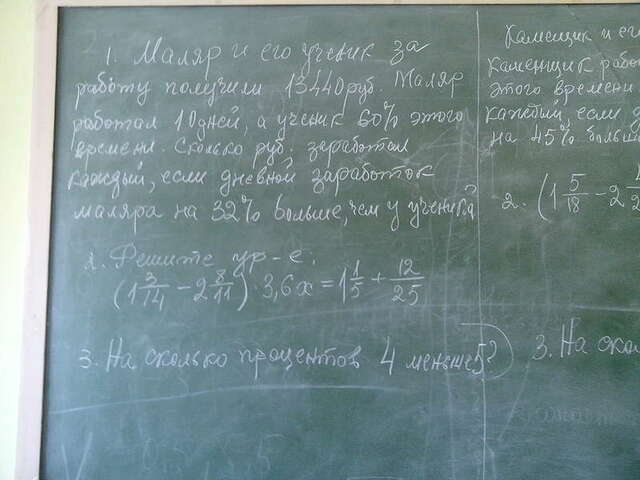 1. Маляр и его ученик за
работу получили 13440 руб. Маляр
работал 10 дней, а ученик 60% этого
времени. Сколько руб. заработал
каждый, если дневной заработок
маляра на 32% больше, чем у ученика
2. Решите ур-е:
(1 3/14 - 2 8/11) · 3,6x = 1 1/5 + 12/25
3. На сколько процентов 4 меньше 5?
Каменщик и его
каменщик рабо
этого времени
каждый, если д
на 45% больш
2. (1 5/18 - 2
3. На ско